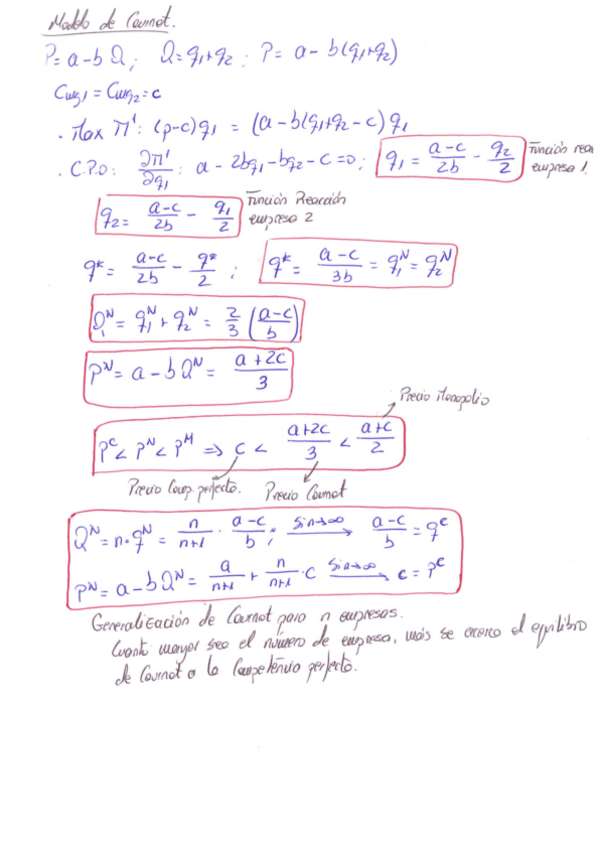 Modelo de Cournot.
P = a - b Q ; Q = q₁ + q₂ ; P = a - b(q₁+q₂)
Cmg₁ = Cmg₂ = c
. Max Π¹: (p-c)q₁ = (a - b(q₁+q₂ - c) q₁
. C.P.O: ∂Π¹/∂q₁ : a - 2bq₁ - bq₂ - c = 0 ; q₁ = (a-c)/2b - q₂/2 Función rea
empresa 1.
q₂ = (a-c)/2b - q₁/2 Función Reacción
empresa 2
q* = (a-c)/2b - q*/2 ; q* = (a-c)/3b = q₁ᴺ = q₂ᴺ
Qᴺ = q₁ᴺ + q₂ᴺ = 2/3 ((a-c)/b)
Pᴺ = a - b Qᴺ = (a+2c)/3
Precio Monopolio
Pᶜ < Pᴺ < Pᴹ ⇒ c < (a+2c)/3 < (a+c)/2
Precio Comp. perfecta. Precio Cournot
Qᴺ = n·qᴺ = n/(n+1) · (a-c)/b ; Si n→∞ → (a-c)/b = qᶜ
Pᴺ = a - b Qᴺ = a/(n+1) + n/(n+1) · c Si n→∞ → c = Pᶜ
Generalización de Cournot para n empresas.
Cuant mayor sea el número de empresa, más se acerca el equilibro
de Cournot a la Competencia perfecta.